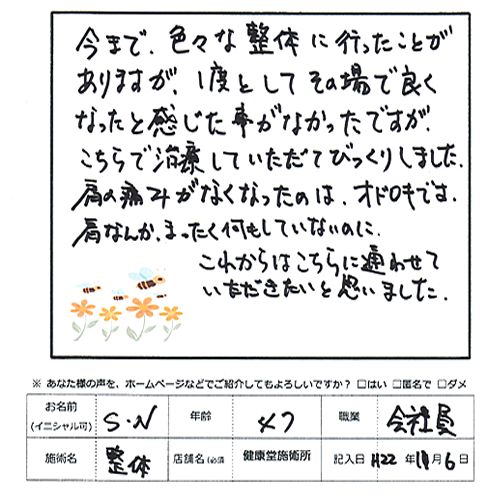 今まで、色々な整体に行ったことが
ありますが、1度としてその場で良く
なったと感じた事がなかったですが、
こちらで治療していただてびっくりしました。
肩の痛みがなくなったのは、オドロキです。
肩なんか、まったく何もしていないのに、
これからはこちらに通わせて
いただきたいと思いました。
※ あなた様の声を、ホームページなどでご紹介してもよろしいですか? □はい □匿名で □ダメ
お名前 (イニシャル可) S・N 年齢 47 職業 会社員
施術名 整体 店舗名 (必須) 健康堂施術所 記入日 H22 年 月 6 日